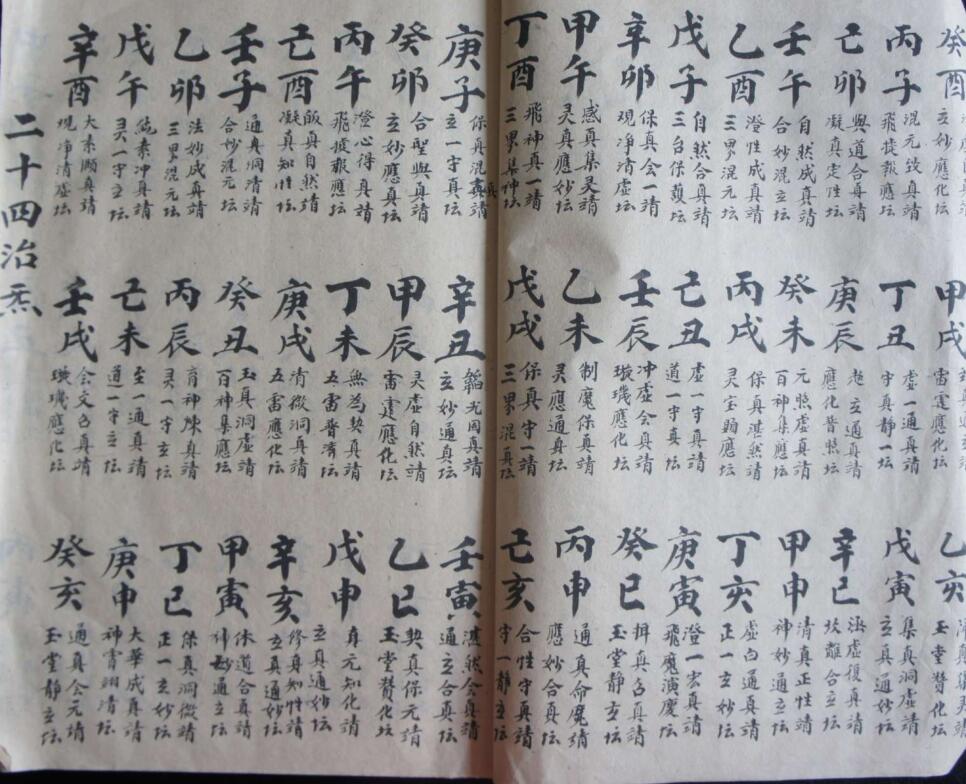 癸酉
立妙應化坛
甲戌
雷霆應化坛
乙亥
玉堂贊化坛
丙子
混元致真靖
飛捷報應坛
丁丑
虚一通真靖
守真靜一坛
戊寅
集真洞虚靖
立真通妙坛
己卯
與道合真靖
凝真定性坛
庚辰
立通真靖
應化普照坛
辛巳
虚復真靖
坎離合立坛
壬午
自然成真靖
合妙混立坛
癸未
元熙虚真靖
百神集應坛
甲申
清真正性靖
神妙通立坛
乙酉
澄性成真靖
三界混元坛
丙戌
保真湛然靖
灵宝翰應坛
丁亥
虚白通真靖
正一立妙坛
戊子
自然合真靖
三台保坛
己丑
虚一守真靖
道一守真
庚寅
澄一宏真靖
飛魔演慶坛
辛卯
保真会一靖
現净清虚坛
壬辰
冲虚会真靖
璇璣應化坛
癸巳
揖真召真靖
玉堂静立坛
甲午
感真集灵靖
灵真應妙坛
乙未
制魔保真靖
灵應通真坛
丙申
通真命魔靖
應妙合真坛
丁酉
飛神真一靖
三界集神坛
戊戌
保真守一靖
三界混真坛
己亥
合性守真靖
守一静立坛
庚子
保真混真靖
立一守真坛
辛丑
韜光固真靖
立妙通真坛
壬寅
湛然会真靖
通立合真坛
癸卯
合聖與真靖
立妙應真坛
甲辰
灵虚自然靖
雷霆應化坛
乙巳
契真保元靖
玉堂贊化坛
丙午
澄心得真靖
飛捷報應坛
丁未
無為契真靖
五雷普濟坛
戊申
真元知化靖
立真通妙坛
己酉
皈真自然靖
凝真知性坛
庚戌
清微洞真靖
五雷應化坛
辛亥
修真知性靖
立真通妙坛
壬子
通真洞清靖
合妙混元坛
癸丑
玉真洞虚靖
百神集應坛
甲寅
休道合真靖
神妙通立坛
乙卯
法妙成真靖
三界混元坛
丙辰
育神陳真靖
灵一守立坛
丁巳
保真洞微靖
正一立妙坛
戊午
純素冲真靖
灵一守立坛
己未
至一通真靖
道一守立坛
庚申
大華成真靖
神霄翊清坛
辛酉
大素順真靖
現净清虚坛
壬戌
会文召真靖
璇璣應化坛
癸亥
通真会元靖
玉堂靜立坛
二十四治炁